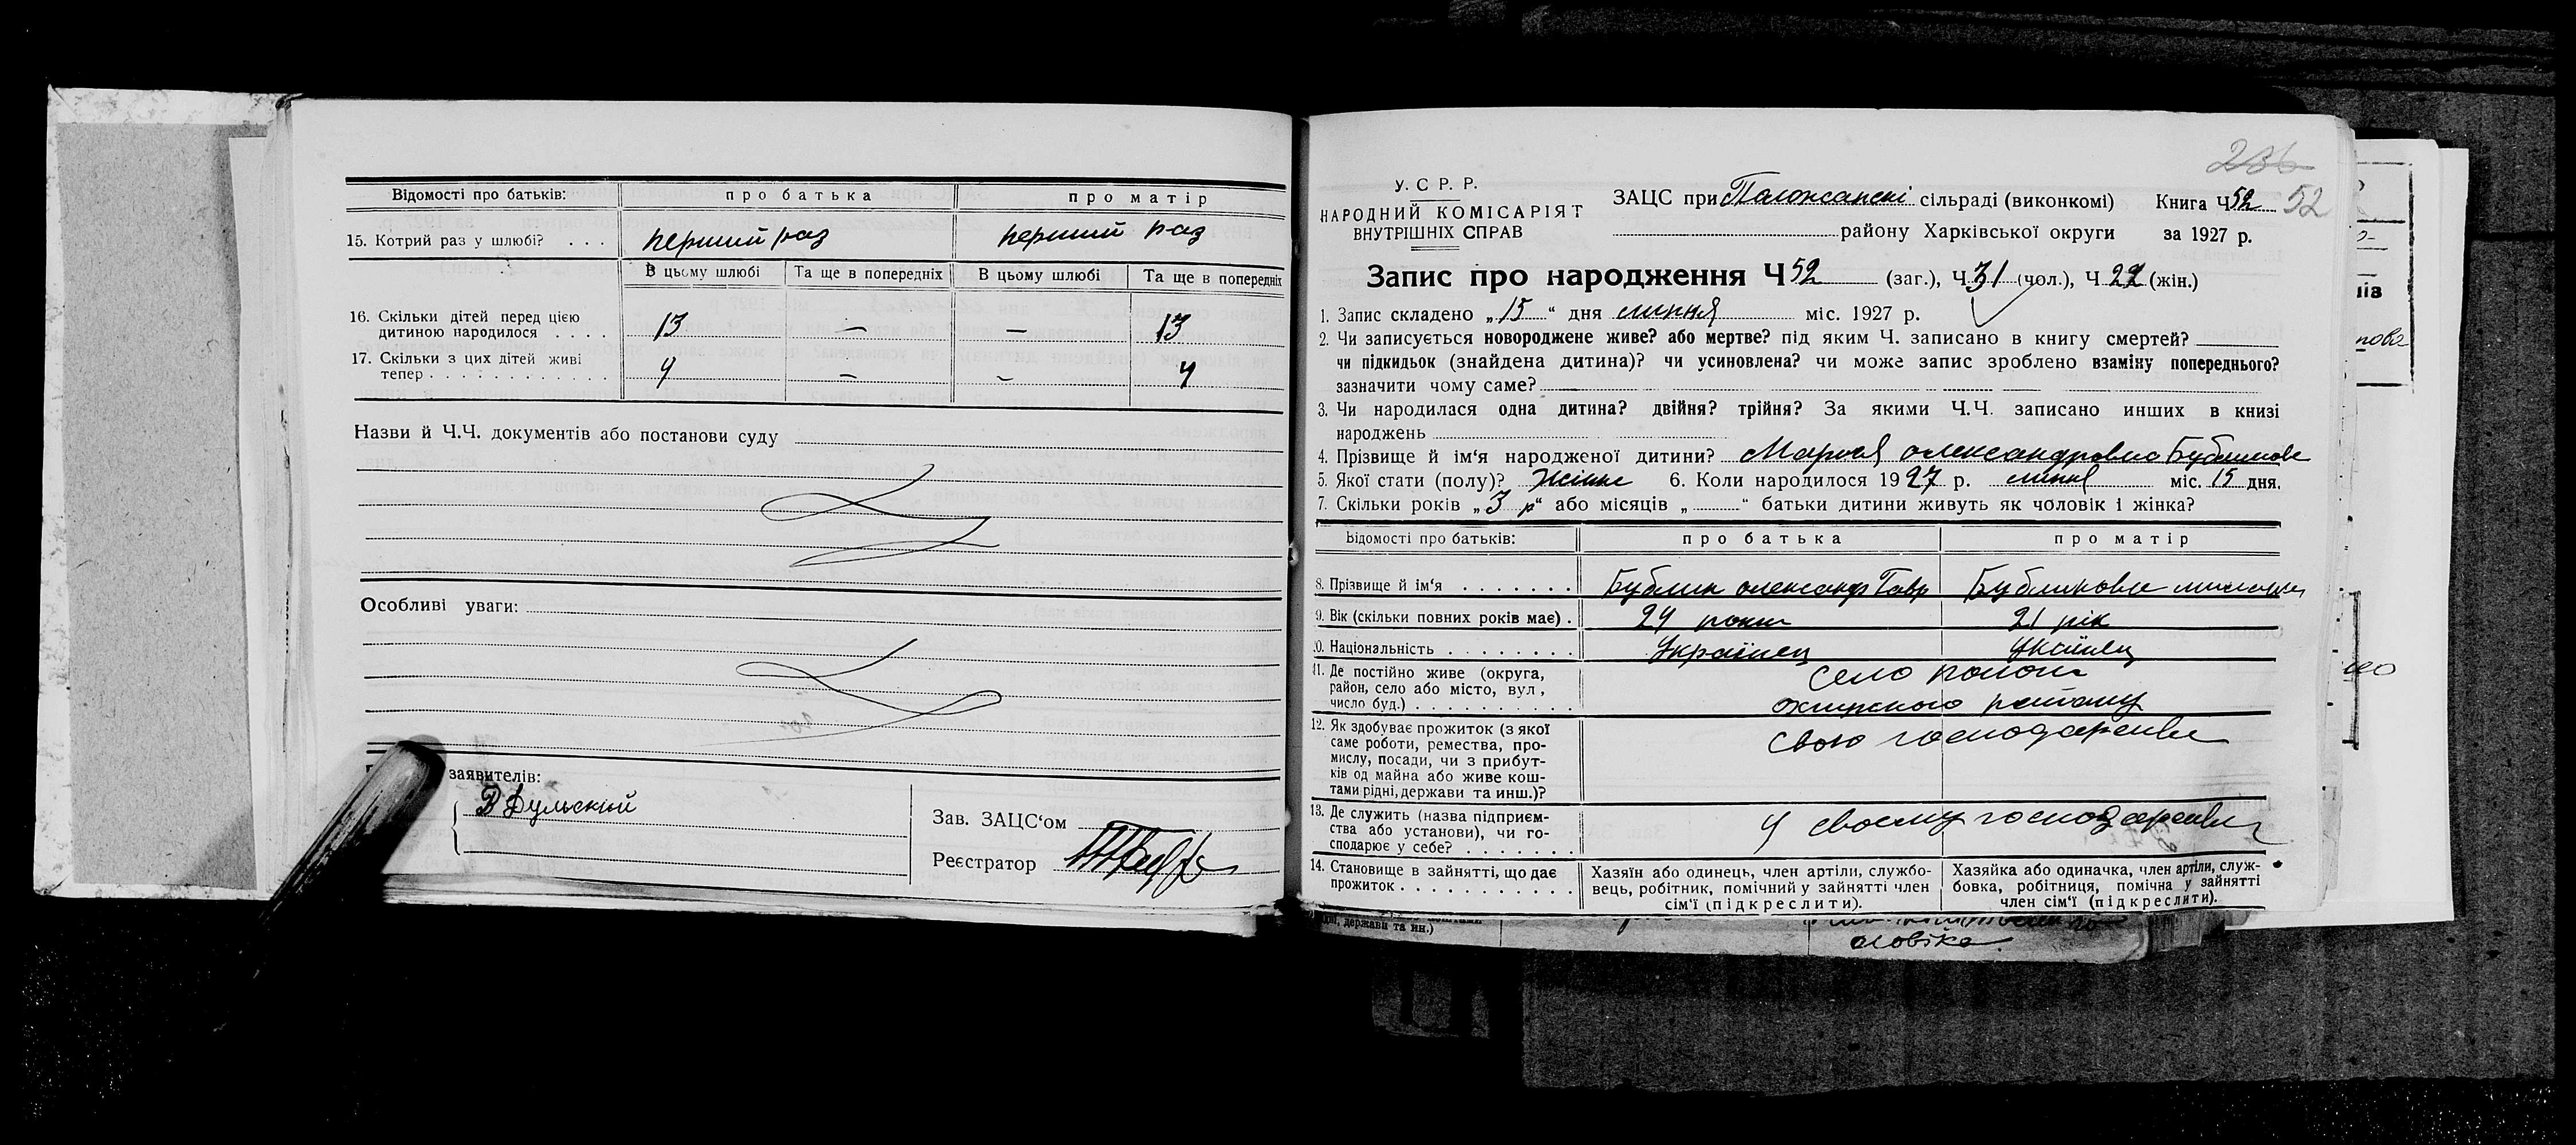 Відомості про батьків: про батька про матір
15. Котрий раз у шлюбі? . . . перший раз перший раз
В цьому шлюбі Та ще в попередніх В цьому шлюбі Та ще в попередніх
16. Скільки дітей перед цією
дитиною народилося . . . . 13 — — 13
17. Скільки з цих дітей живі
тепер . . . . . . . . . . . . 4 — — 4
Назви й Ч.Ч. документів або постанови суду
Особливі уваги:
заявителів:
Зав. ЗАЦС‘ом
Реєстратор
236
У. С. Р. Р.
НАРОДНИЙ КОМІСАРІЯТ
ВНУТРІШНІХ СПРАВ
ЗАЦС при сільраді (виконкомі) Книга Ч 52 52
району Харківської округи за 1927 р.
Запис про народження Ч 52 (заг.), Ч. 31 (чол.), Ч (жін.)
1. Запис складено „15“ дня липня міс. 1927 р.
2. Чи записується новороджене живе? або мертве? під яким Ч. записано в книгу смертей?
чи підкидьок (знайдена дитина)? чи усиновлена? чи може запис зроблено взаміну попереднього?
зазначити чому саме?
3. Чи народилася одна дитина? двійня? трійня? За якими Ч.Ч. записано инших в книзі
народжень
4. Прізвище й ім‘я народженої дитини? Марія олександровна
5. Якої стати (полу)? 6. Коли народилося 1927 р. липня міс. 15 дня.
7. Скільки років „3 р“ або місяців „ “ батьки дитини живуть як чоловік і жінка?
Відомості про батьків: про батька про матір
8. Прізвище й ім‘я . . . . . . . Бублик олександр Гавр
9. Вік (скільки повних років має) . 24 роки 21 рік
10. Національність . . . . . . . . Українец
11. Де постійно живе (округа, село
район, село або місто, вул.,
число буд.) . . . . . . . . . .
12. Як здобуває прожиток (з якої свою
саме роботи, ремества, про-
мислу, посади, чи з прибут-
ків од майна або живе кош-
тами рідні, держави та инш.)?
13. Де служить (назва підприєм- У своєму
ства або установи), чи го-
сподарює у себе? . . . . . . .
14. Становище в зайнятті, що дає
прожиток . . . . . . . . . . . .
Хазяїн або одинець, член артіли, службо-
вець, робітник, помічний у зайнятті член
сім‘ї (підкреслити).
Хазяйка або одиначка, член артіли, служ-
бовка, робітниця, помічна у зайнятті
член сім‘ї (підкреслити).
держави та ин.)